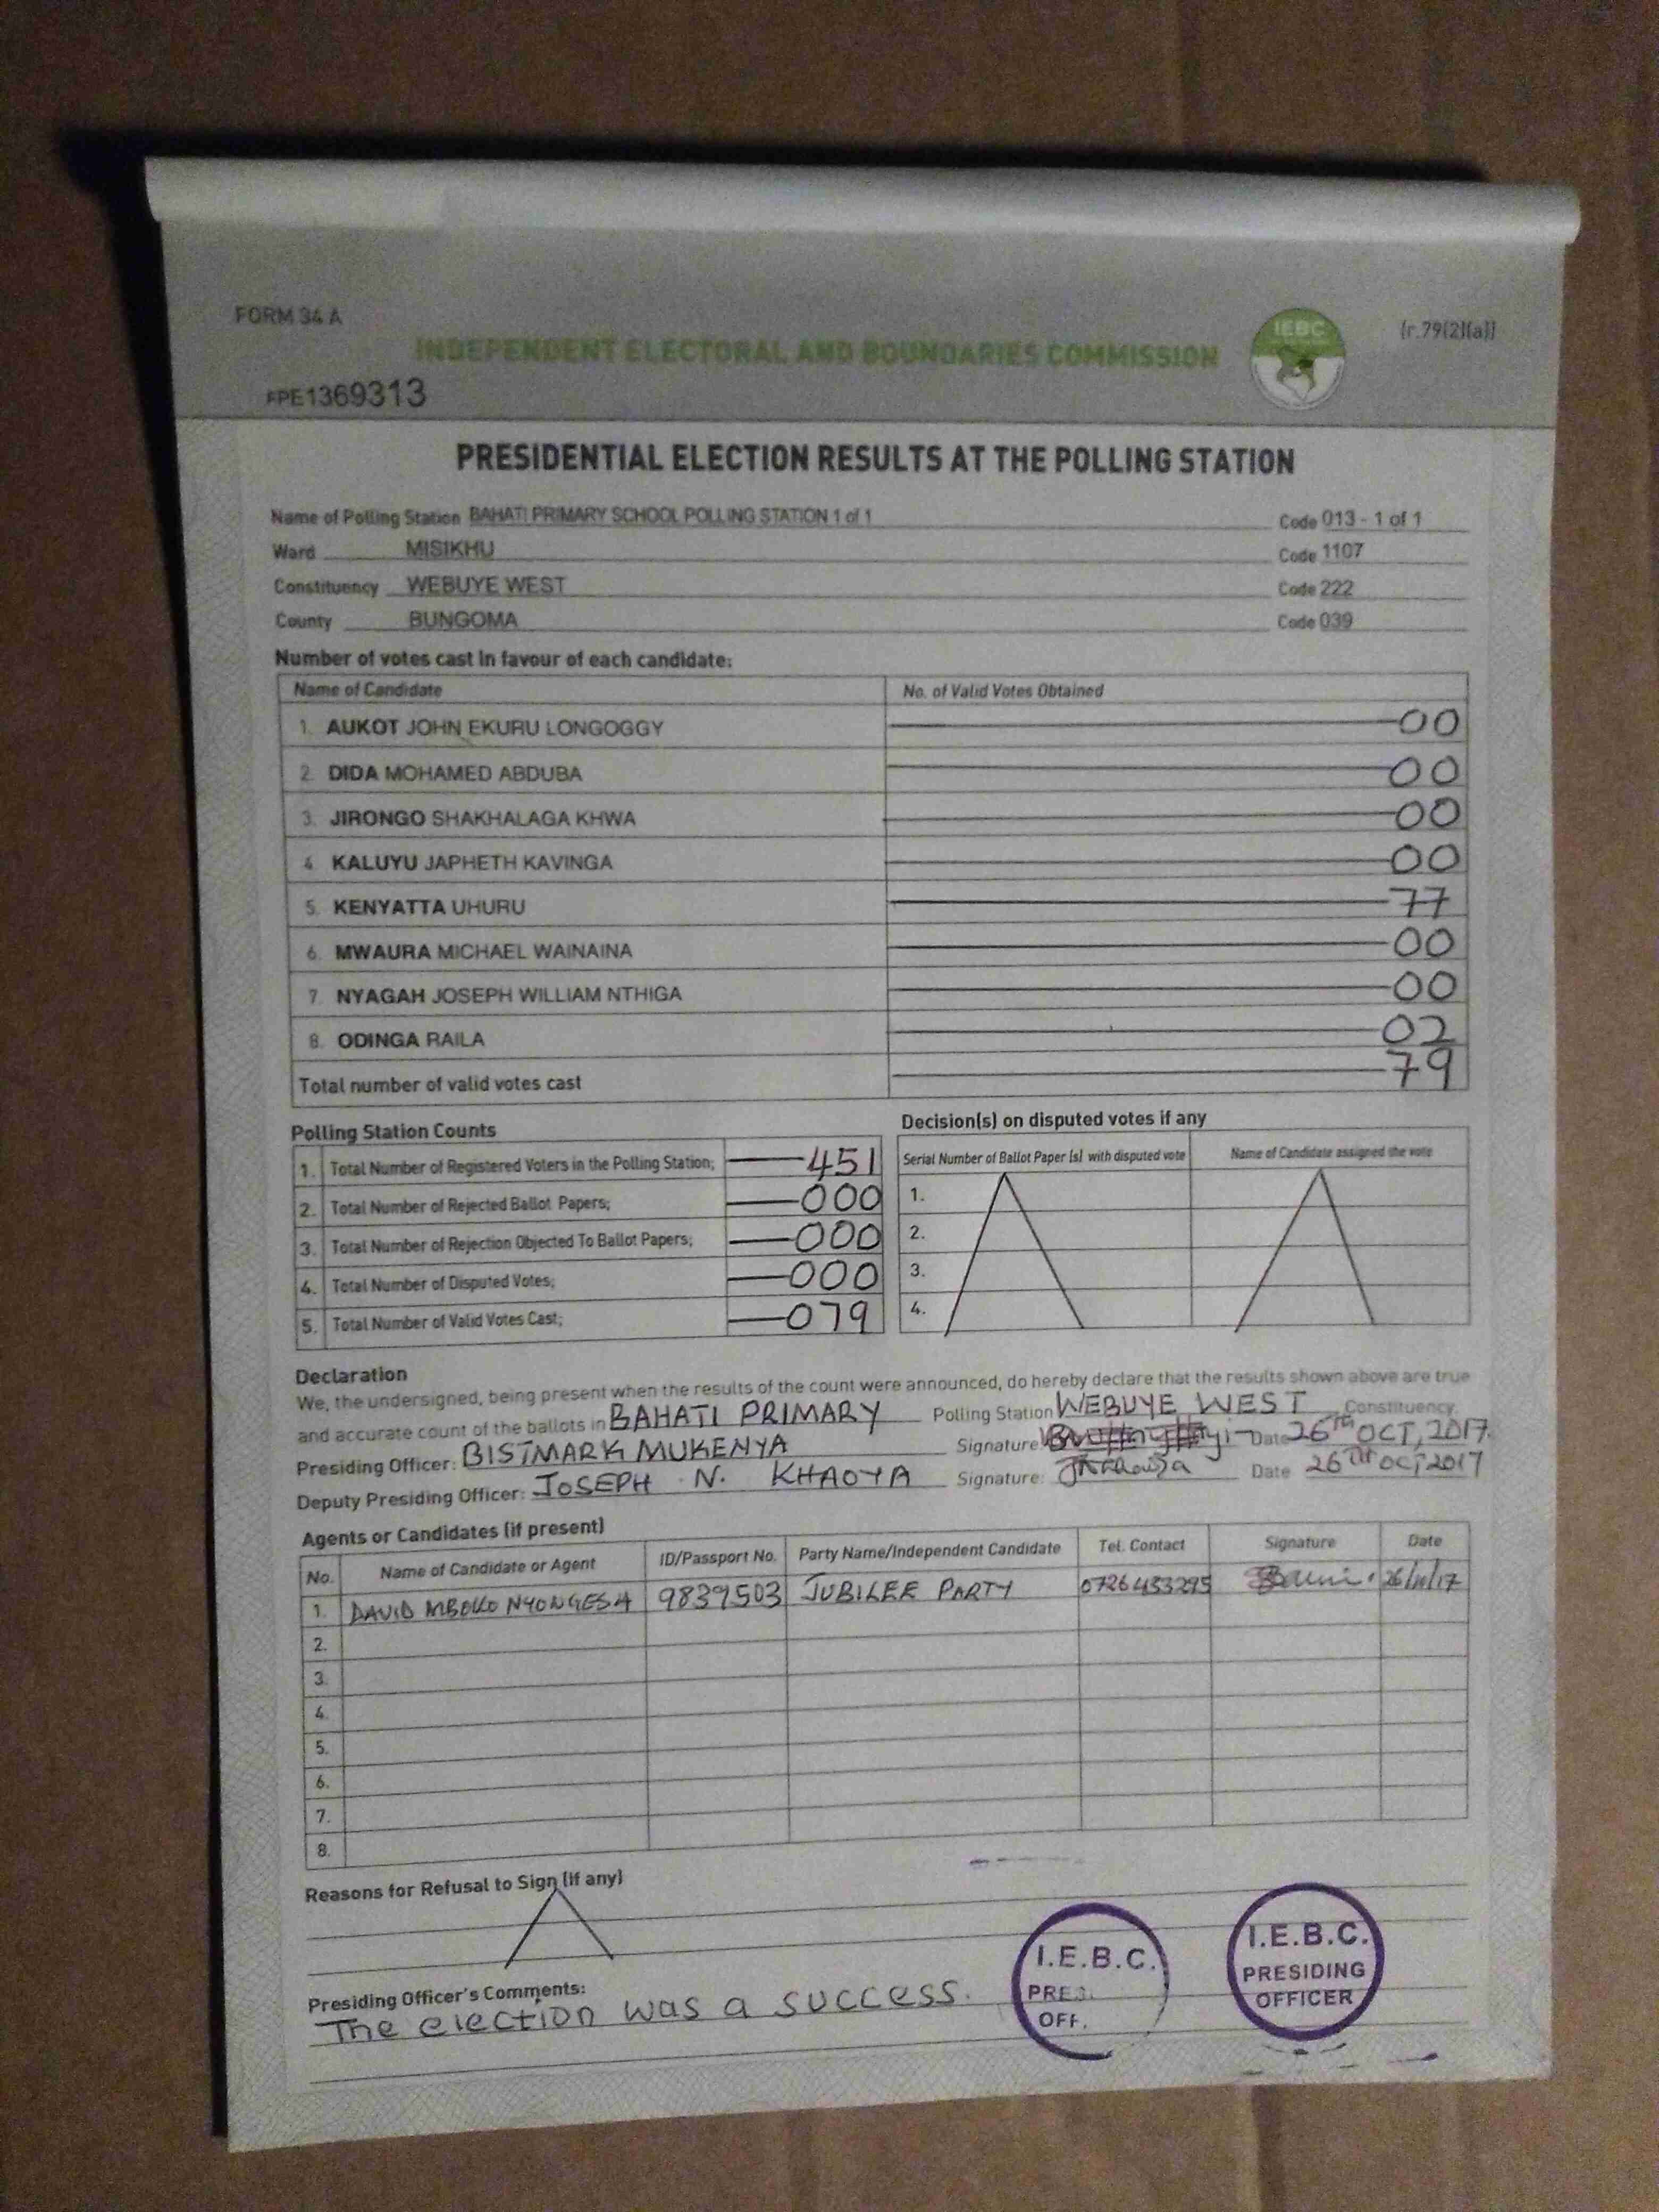 FORM 34 A
(r.79(2)(a))
INDEPENDENT ELECTORAL AND BOUNDARIES COMMISSION
IEBC
FPE1369313
PRESIDENTIAL ELECTION RESULTS AT THE POLLING STATION
Name of Polling Station BAHATI PRIMARY SCHOOL POLLING STATION 1 of 1 Code 013 - 1 of 1
Ward MISIKHU Code 1107
Constituency WEBUYE WEST Code 222
County BUNGOMA Code 039
Number of votes cast in favour of each candidate:
Name of Candidate No. of Valid Votes Obtained
1. AUKOT JOHN EKURU LONGOGGY 00
2. DIDA MOHAMED ABDUBA 00
3. JIRONGO SHAKHALAGA KHWA 00
4. KALUYU JAPHETH KAVINGA 00
5. KENYATTA UHURU 77
6. MWAURA MICHAEL WAINAINA 00
7. NYAGAH JOSEPH WILLIAM NTHIGA 00
8. ODINGA RAILA 02
Total number of valid votes cast 79
Polling Station Counts
1. Total Number of Registered Voters in the Polling Station; 451
2. Total Number of Rejected Ballot Papers; 000
3. Total Number of Rejection Objected To Ballot Papers; 000
4. Total Number of Disputed Votes; 000
5. Total Number of Valid Votes Cast; 079
Decision(s) on disputed votes if any
Serial Number of Ballot Paper (s) with disputed vote Name of Candidate assigned the vote
1.
2.
3.
4.
Declaration
We, the undersigned, being present when the results of the count were announced, do hereby declare that the results shown above are true
and accurate count of the ballots in BAHATI PRIMARY Polling Station WEBUYE WEST Constituency.
Presiding Officer: BISTMARK MUKENYA Signature Date 26TH OCT, 2017.
Deputy Presiding Officer: JOSEPH N. KHAOYA Signature: Date 26TH OCT 2017
Agents or Candidates (if present)
No. Name of Candidate or Agent ID/Passport No. Party Name/Independent Candidate Tel. Contact Signature Date
1. DAVID MBOKO NYONGESA 9839503 JUBILEE PARTY 0726453295 26/10/17
2.
3.
4.
5.
6.
7.
8.
Reasons for Refusal to Sign (if any)
Presiding Officer's Comments:
The election was a success.
I.E.B.C.
PRES.
OFF.
I.E.B.C.
PRESIDING
OFFICER